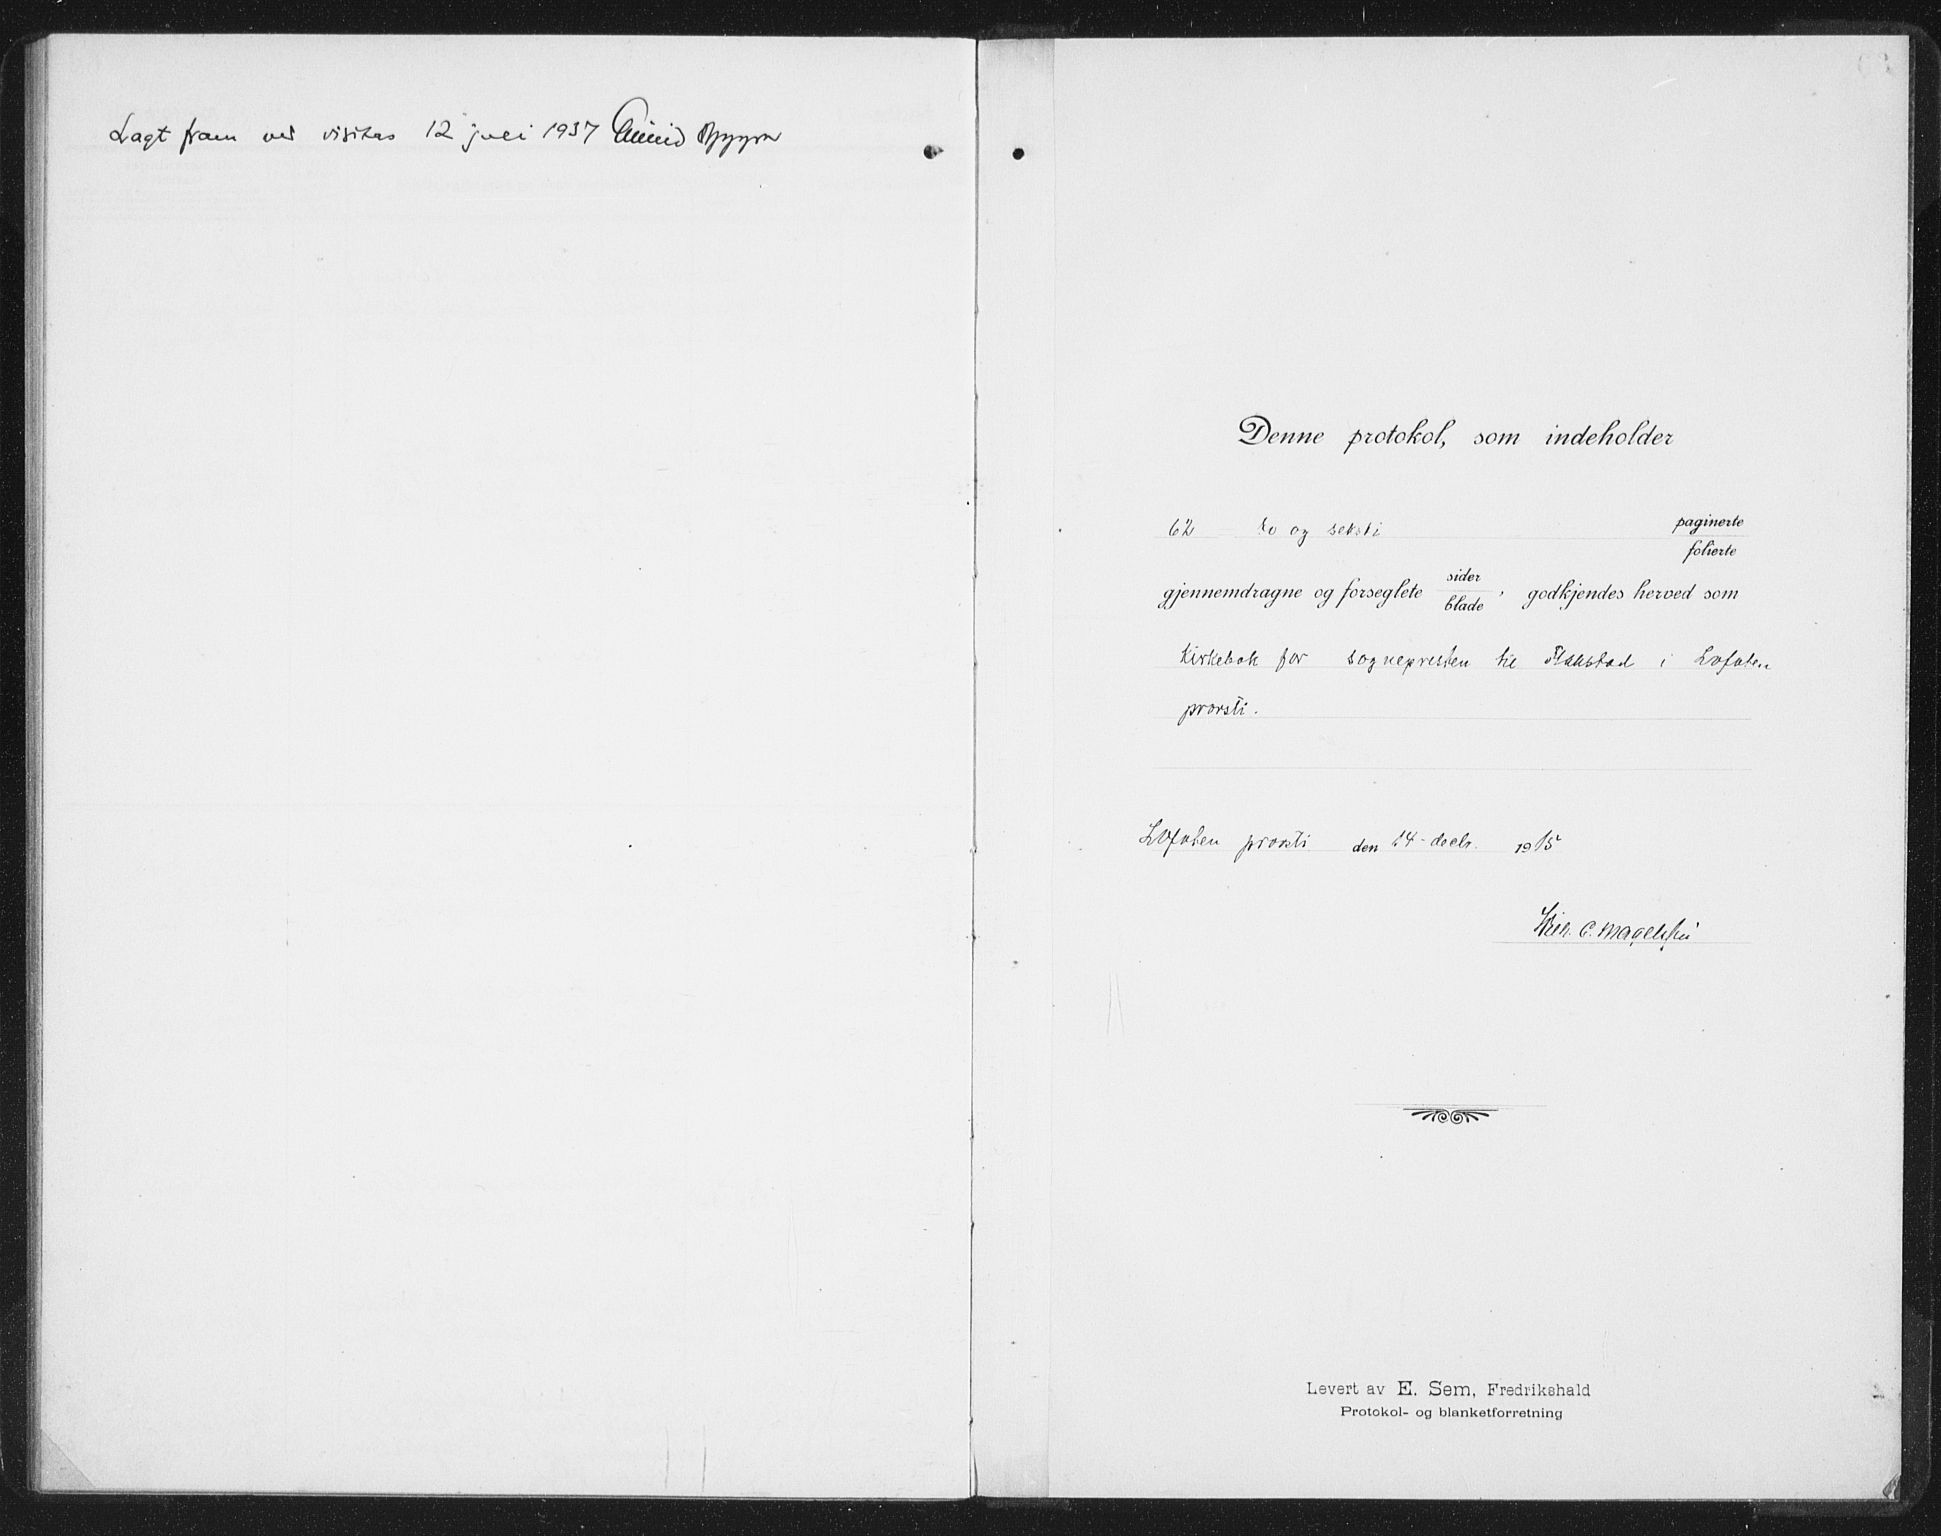 Lagt fram ved visitas 12 juli 1937 Eivind Berggrav
Denne protokol, som indeholder
62 to og seksti paginerte
folierte
gjennemdragne og forseglete sider
blade, godkjendes herved som
kirkebok for sognepresten til Flakstad i Lofoten
prosti.
Lofoten prosti den 14-decbr. 1915
Wilh. C. Magelssen
Levert av E. Sem, Fredrikshald
Protokol- og blanketforretning